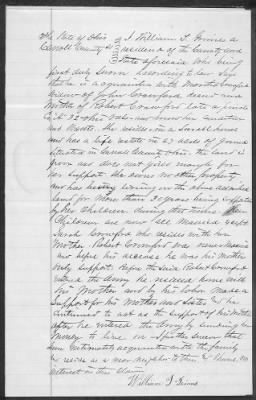 The State of Ohio } I William T. Irvine a
Carroll County ss } resident of the County and
State aforesaid who being
first duly sworn according to law says
that he is acquainted with Martha Crawford
widow of John Crawford dead and
Mother of Robert Crawford late a private
Co. 32 Ohio Vol and know her condition
and wants. She resides in a small house
and has a life estate to 63 acres of ground
situated in Carroll County Ohio the land is
poor and does not yield enough for
her support. She owns no other property
and has been living on the above described
land for more than 20 years being supported
by her children during that time. Her
Children are now all Married except
Sarah Crawford who resides with her
Mother. Robert Crawford was never Married
and before his decease he was his Mother
only support. Before the said Robert Crawford
entered the Army he remained home with
his Mother and by his labor made a
support for his Mother and Sister and he
continued to act as the support of his Mother
after he entered the Army by sending her
Money to live on
am intimately acquainted with the family
and reside as a near neighbor to them & I have no
interest in this claim
William T. Irvine